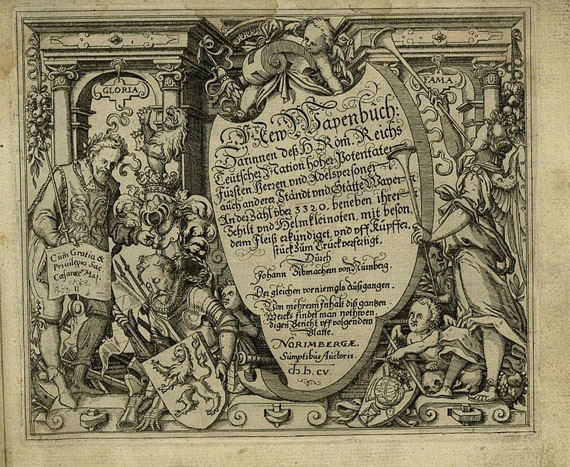 GLORIA
FAMA
New Wapenbuch:
Darinnen deß H. Röm. Reichs
Teutscher Nation hoher Potentaten
Fürsten Herren und Adelspersonen
auch anderer Ständt und Stätte Wapen
An der Zahl über 3320. beneben ihren
Schilt und Helmkleinoten, mit beson,
derm Fleiß erkündiget, und uff Kupffer,
stück zum Truck verfertigt,
Durch
Johann Sibmachern von Nürnberg.
Der gleichen vorniemals außgangen.
Von mehrerm inhalt diß gantzen
Wercks findet man nothwen,
digen Bericht uff volgendem
Blatte.
NORIMBERGÆ.
Sumptibus Auctoris.
CV
Cum Gratia &
Privilegio Sac
Cæsareæ Mai.